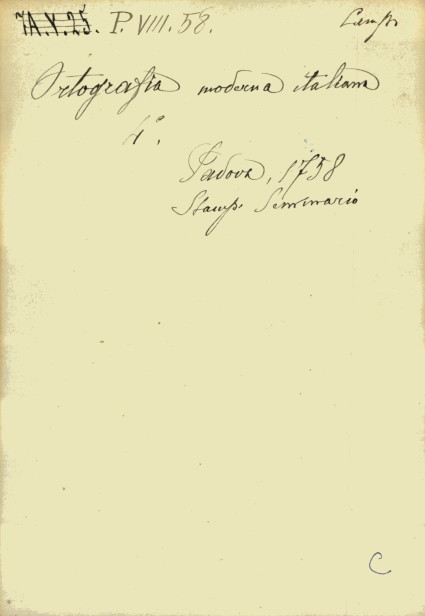 7A.Y.25. P. VIII. 58.
Ortografia moderna italiana
4°.
Padova, 1758
Stamp. Seminario
C